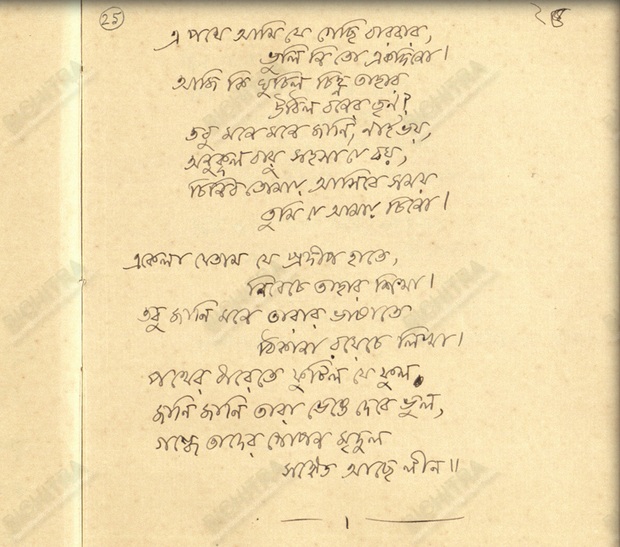 25
এ পথে আমি যে গেছি বারবার,
ভুলি নি তো একদিনো।
আজি কি ঘুচিল চিহ্ন তাহার
উঠিল বনের তৃণ?
তবু মনে মনে জানি, নাই ভয়,
অনুকূল বায়ু সহসা যে বয়,
চিনিব তোমায় আসিবে সময়
তুমি যে আমায় চিনো।
একেলা যেতাম যে প্রদীপ হাতে,
নিবেচে তাহার শিখা।
তবু জানি মনে তারার ভাষাতে
ঠিকানা রয়েচে লিখা।
পথের ধারেতে ফুটিল যে ফুল,
জানি জানি তারা ভেঙে দেবে ভুল,
গন্ধে তাদের গোপন মৃদুল
সঙ্কেত আছে লীন॥
BICHITRA